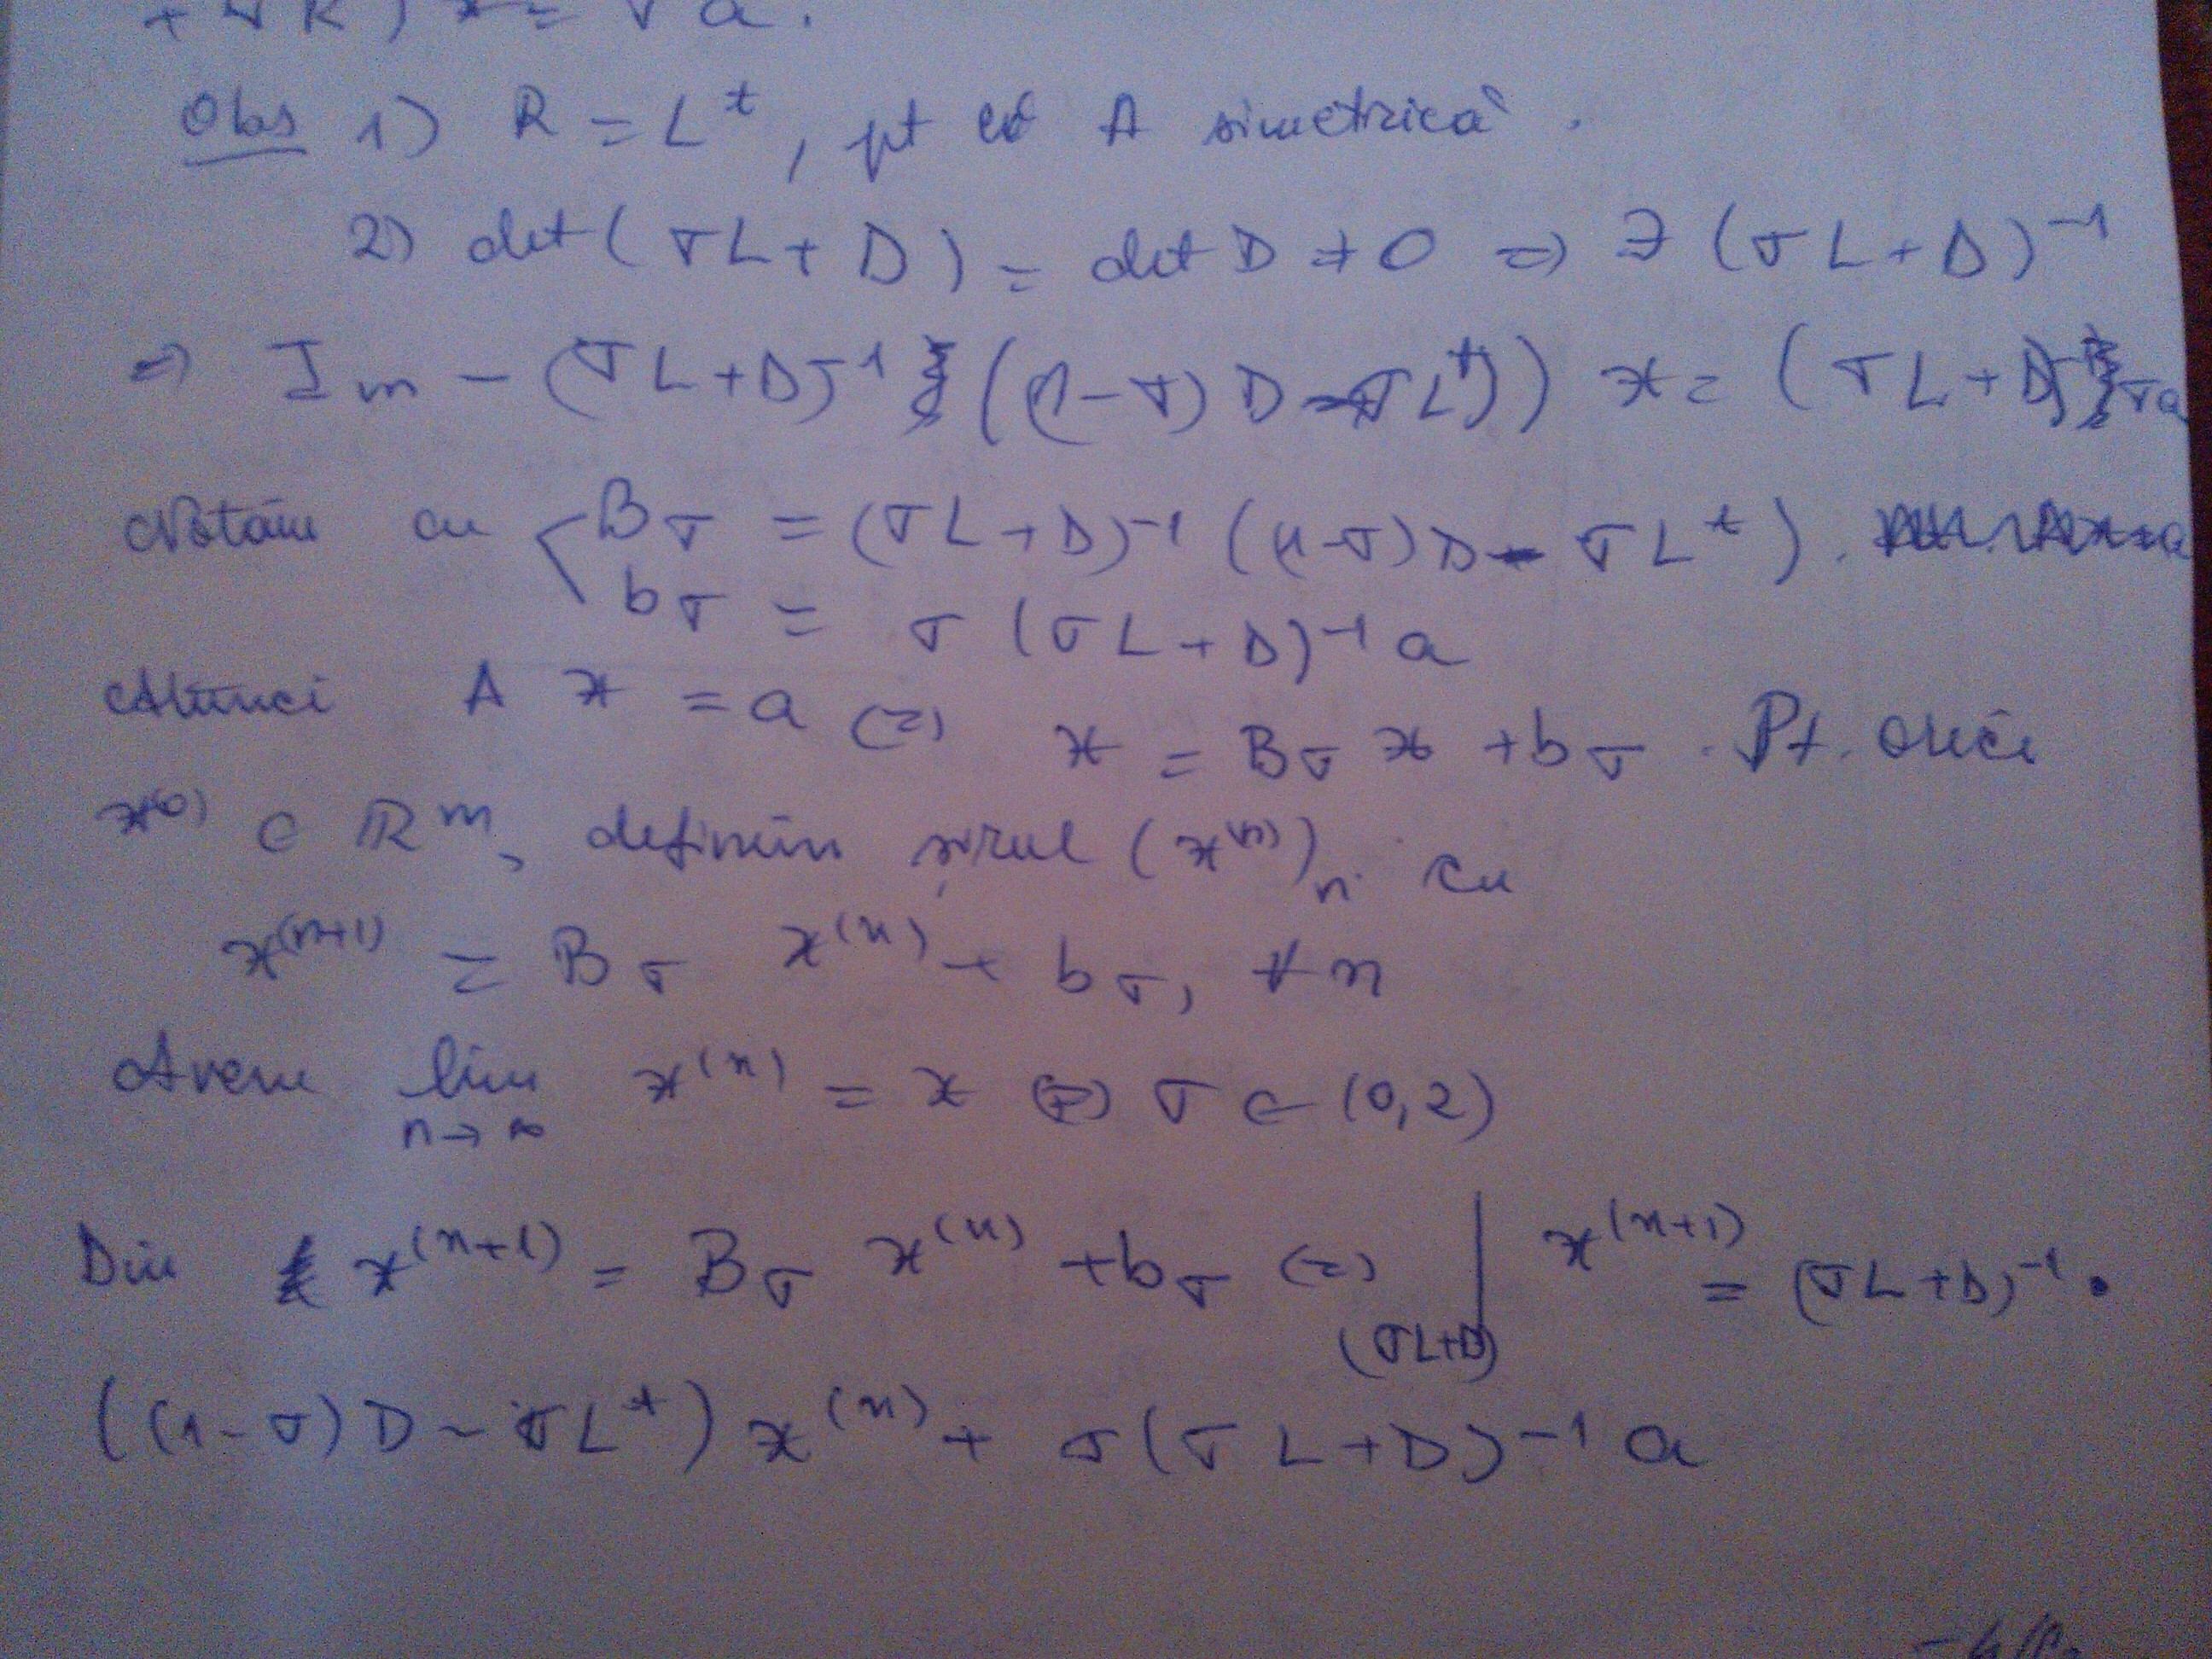 + σR) x = σa.
Obs 1) R = L^t, pt că A simetrică.
2) det(σL + D) = det D ≠ 0 ⇒ ∃ (σL + D)^-1
⇒ Im - (σL + D)^-1 ((1-σ)D - σL^t)) x = (σL + D)^-1 σa
Notăm cu < Bσ = (σL + D)^-1 ((1-σ)D - σL^t).
bσ = σ (σL + D)^-1 a
Atunci A x = a (=) x = Bσ x + bσ. Pt. orice
x^(0) ∈ ℝ^m, definim șirul (x^(n))_n cu
x^(n+1) = Bσ x^(n) + bσ, ∀ n
Avem lim x^(n) = x (=) σ ∈ (0,2)
n→∞
Din x^(n+1) = Bσ x^(n) + bσ (=) | x^(n+1) = (σL + D)^-1 •
(σL+D)
((1-σ)D - σL^t) x^(n) + σ(σL + D)^-1 a